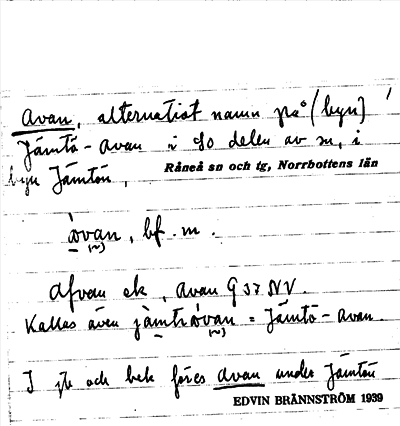 Avan, alternativt namn på (byn)
Jämtö-avan i sö delen av sn, i
byn Jämtön,
Råneå sn och tg, Norrbottens län
àvan, bf. m.
(~)
Afvan ek, avan G 37 NV.
Kallas även jàmtǝàvan = Jämtö-avan.
(~)
I jb och bek föres Avan under Jämtön
EDVIN BRÄNNSTRÖM 1939